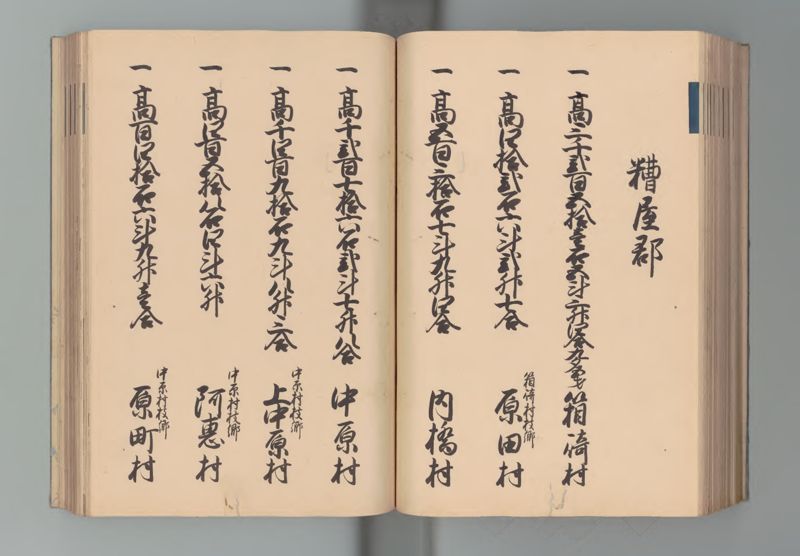 糟屋郡
一 高三千弐百五拾壱石五斗三升四合九夕 箱崎村
一 高四拾弐石六斗弐升七合 箱崎村枝郷 原田村
一 高五百三拾石七斗九升四合 内橋村
一 高千弐百七拾六石弐斗七升八合 中原村
一 高千四百九拾石九斗八升三合 中原村枝郷 上中原村
一 高四百五拾八石四斗六升 中原村枝郷 阿惠村
一 高百四拾石六斗九升壱合 中原村枝郷 原町村